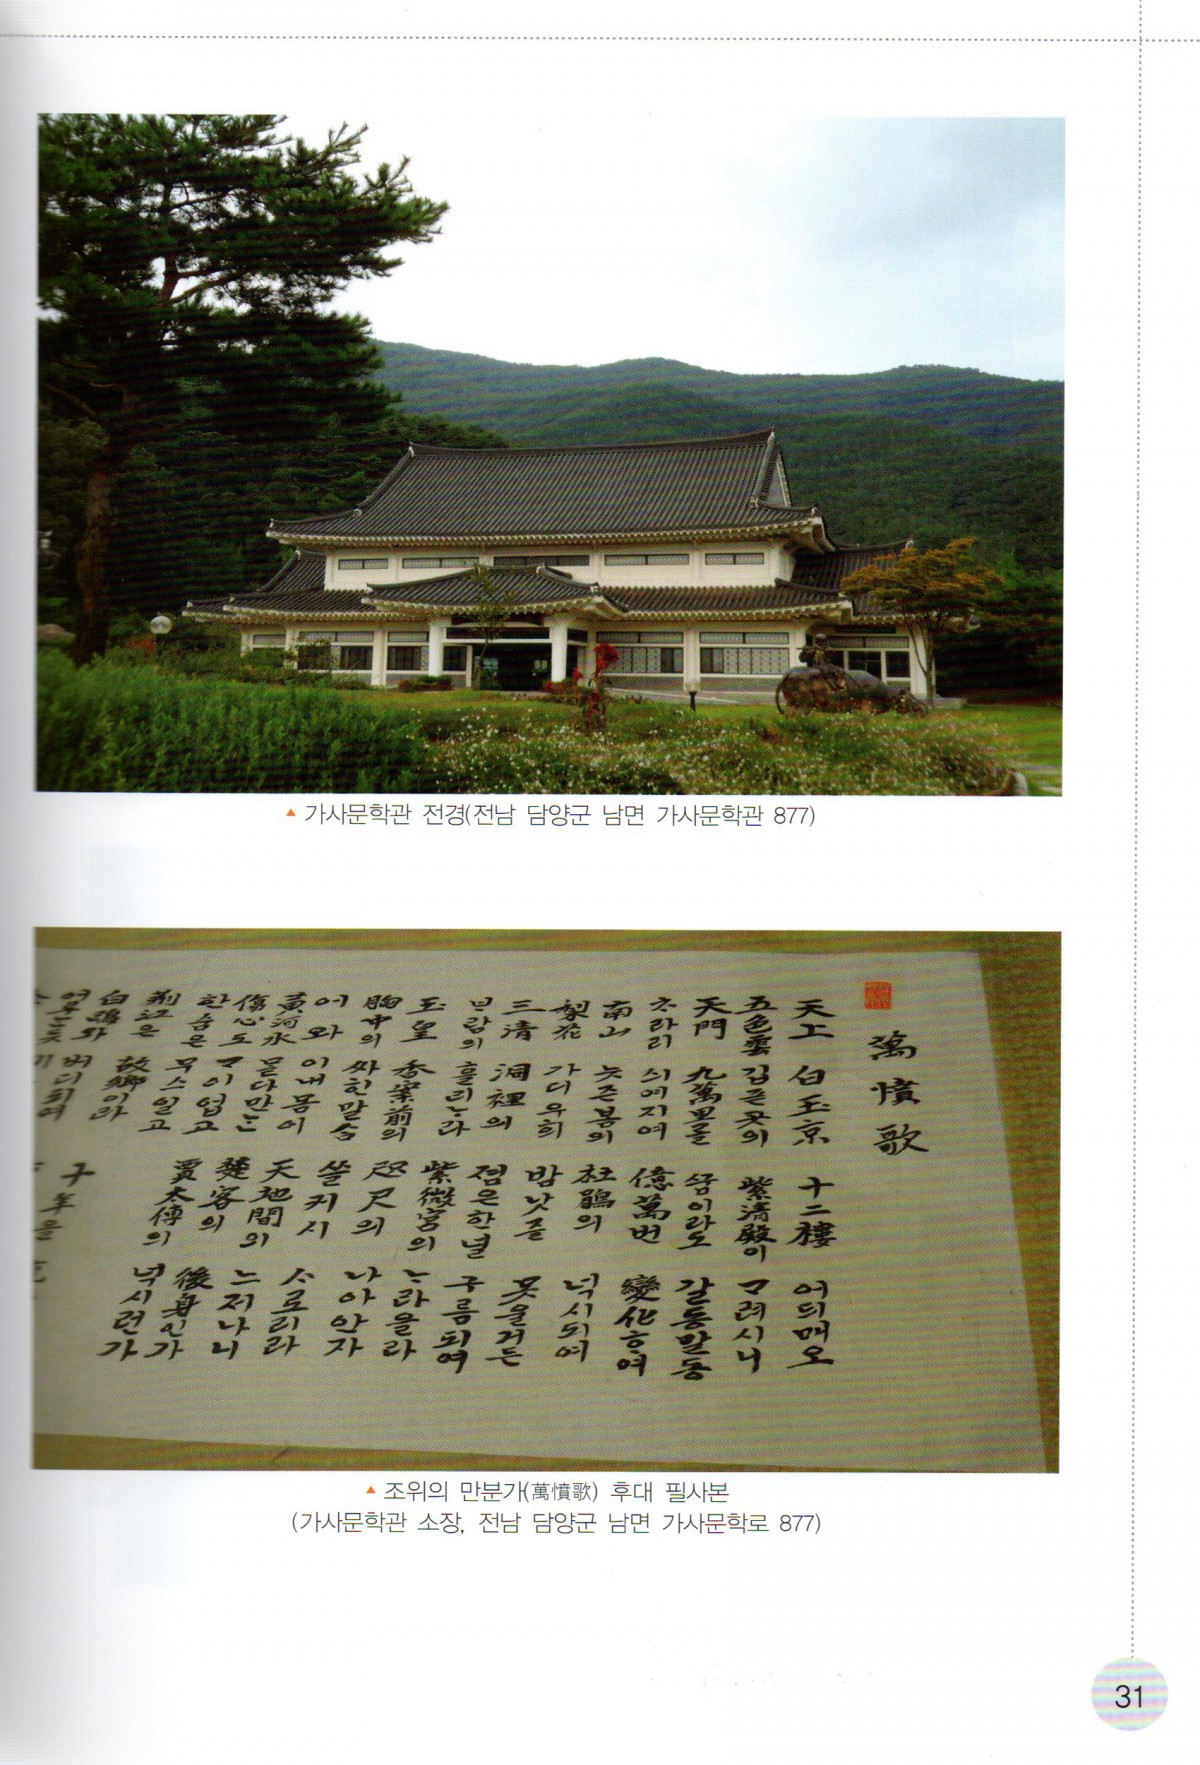 ▲ 가사문학관 전경(전남 담양군 남면 가사문학관 877)
萬憤歌
天上 白玉京 十二樓 어듸매오
五色雲 깁픈곳의 紫淸殿이 ᄀᆞ려시니
天門 九萬里를 ᄭᅮᆷ이라도 갈동말동
ᄎᆞ라리 싀여지여 億萬번 變化ᄒᆞ여
南山 늣즌봄의 杜鵑의 넉시되여
梨花 가디우희 밤낫즐 못울거든
三淸 洞裡의 졈은한널 구름되여
ᄇᆞ람의 흘리ᄂᆞ라 紫微宮의 ᄂᆞ라올라
玉皇 香案前의 咫尺의 나아안자
胸中의 싸힌말슴 쓸커시 ᄉᆞ로리라
어와 이내몸이 天地間의 느저나니
黃河水 ᄆᆞᆰ다만ᄂᆞᆫ 楚客의 後身인가
傷心도 ᄀᆞ이업고 賈太傅의 넉시런가
한숨은 무스일고
荊江은 故鄕이라
白鷗와 버디되여
▲ 조위의 만분가(萬憤歌) 후대 필사본
(가사문학관 소장, 전남 담양군 남면 가사문학로 877)
31